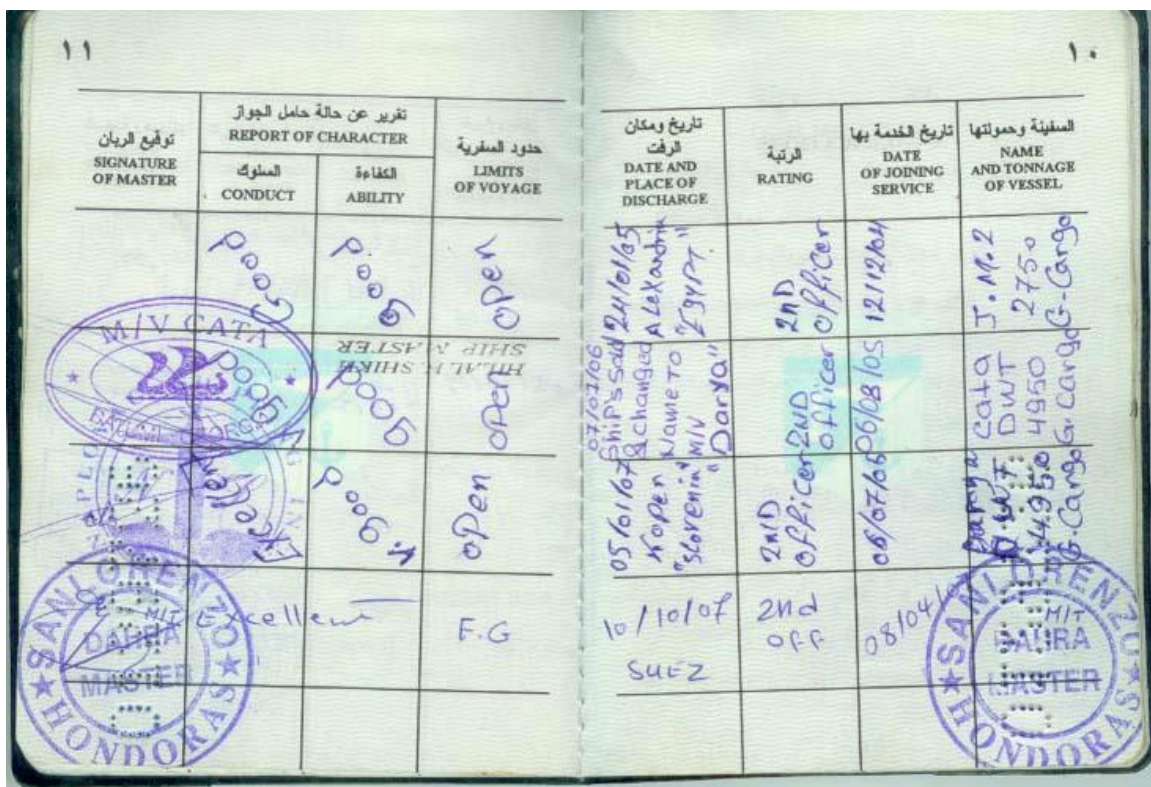 ١١
توقيع الربان
SIGNATURE
OF MASTER
تقرير عن حالة حامل الجواز
REPORT OF CHARACTER
السلوك
CONDUCT
الكفاءة
ABILITY
حدود السفرية
LIMITS
OF VOYAGE
Good
Good
open
M/V CATA
HILAL H. SHIKH
SHIP MASTER
Good
Good
open
Excellent
V. good
open
SANLORENZO
M/T
DAHRA
MASTER
HONDORAS
Excellent
F.G
١٠
تاريخ ومكان
الرفت
DATE AND
PLACE OF
DISCHARGE
الرتبة
RATING
تاريخ الخدمة بها
DATE
OF JOINING
SERVICE
السفينة وحمولتها
NAME
AND TONNAGE
OF VESSEL
24/01/05
ALexandria
"EgyPT"
2ND
officer
12/12/04
J.M.2
2750
G-Cargo
07/07/06
ShiPs sold
& changed
Name TO
M/V
"Darya"
2ND
officer
06/08/05
Cata
DWT
4950
G.Cargo
05/01/07
KoPer
"Slovenia"
2ND
officer
06/07/06
Darya
DWT
4950
G.Cargo
10/10/07
SUEZ
2nd
OFF
08/04/
SANLORENZO
M/T
DAHRA
MASTER
HONDORAS